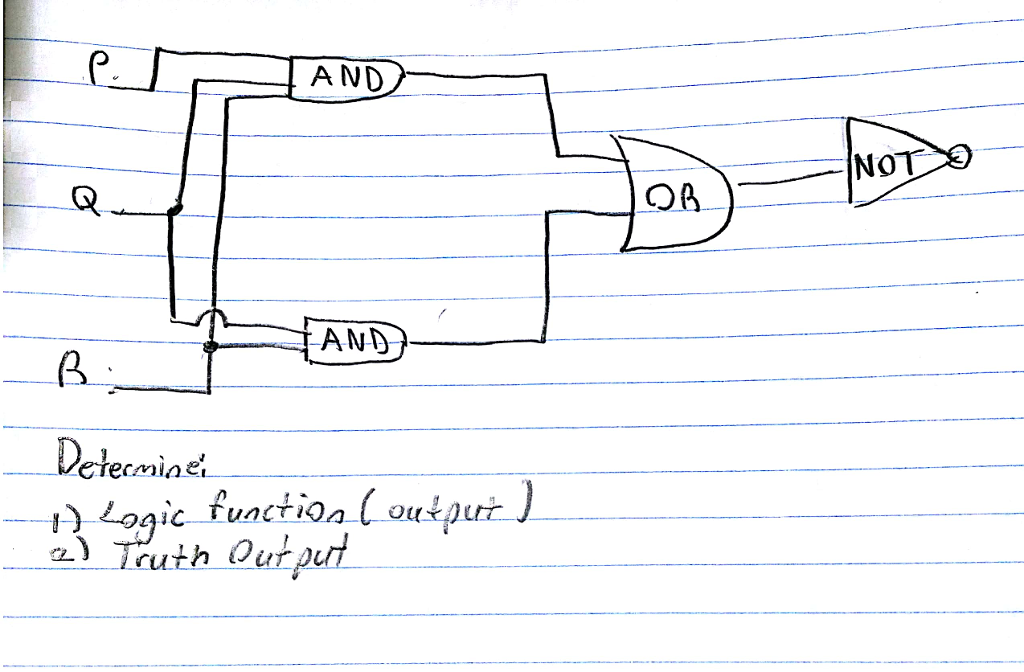 P.
AND
NOT
OR
Q
AND
R
Determine:
1) Logic function (output)
2) Truth Output